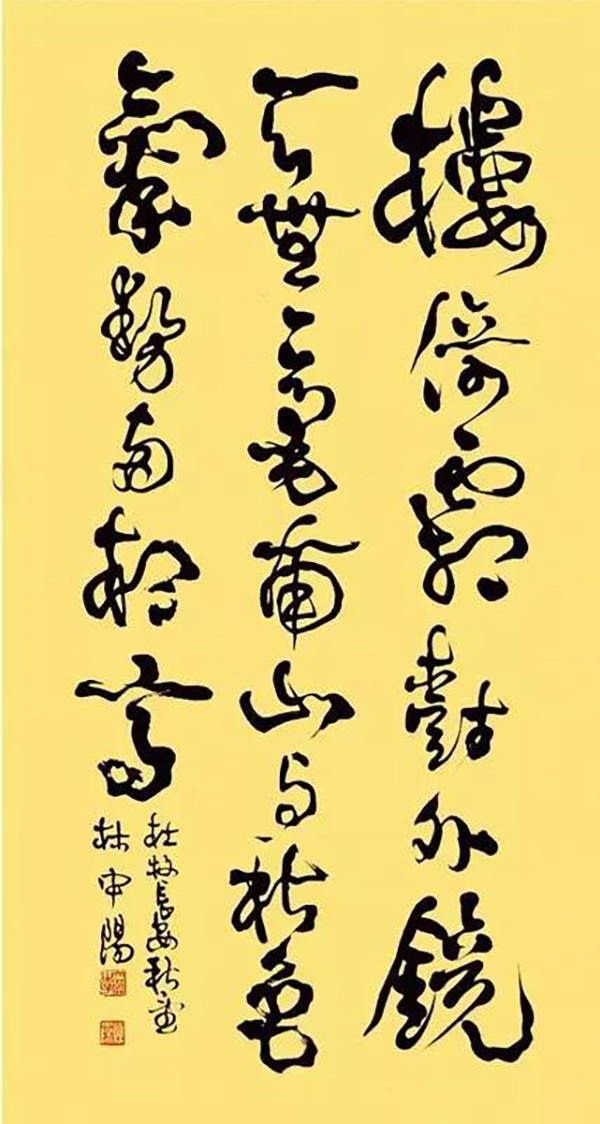 樓倚霜樹外鏡
天無一毫南山与秋色
氣勢兩相高
杜牧長安秋望
林中陽